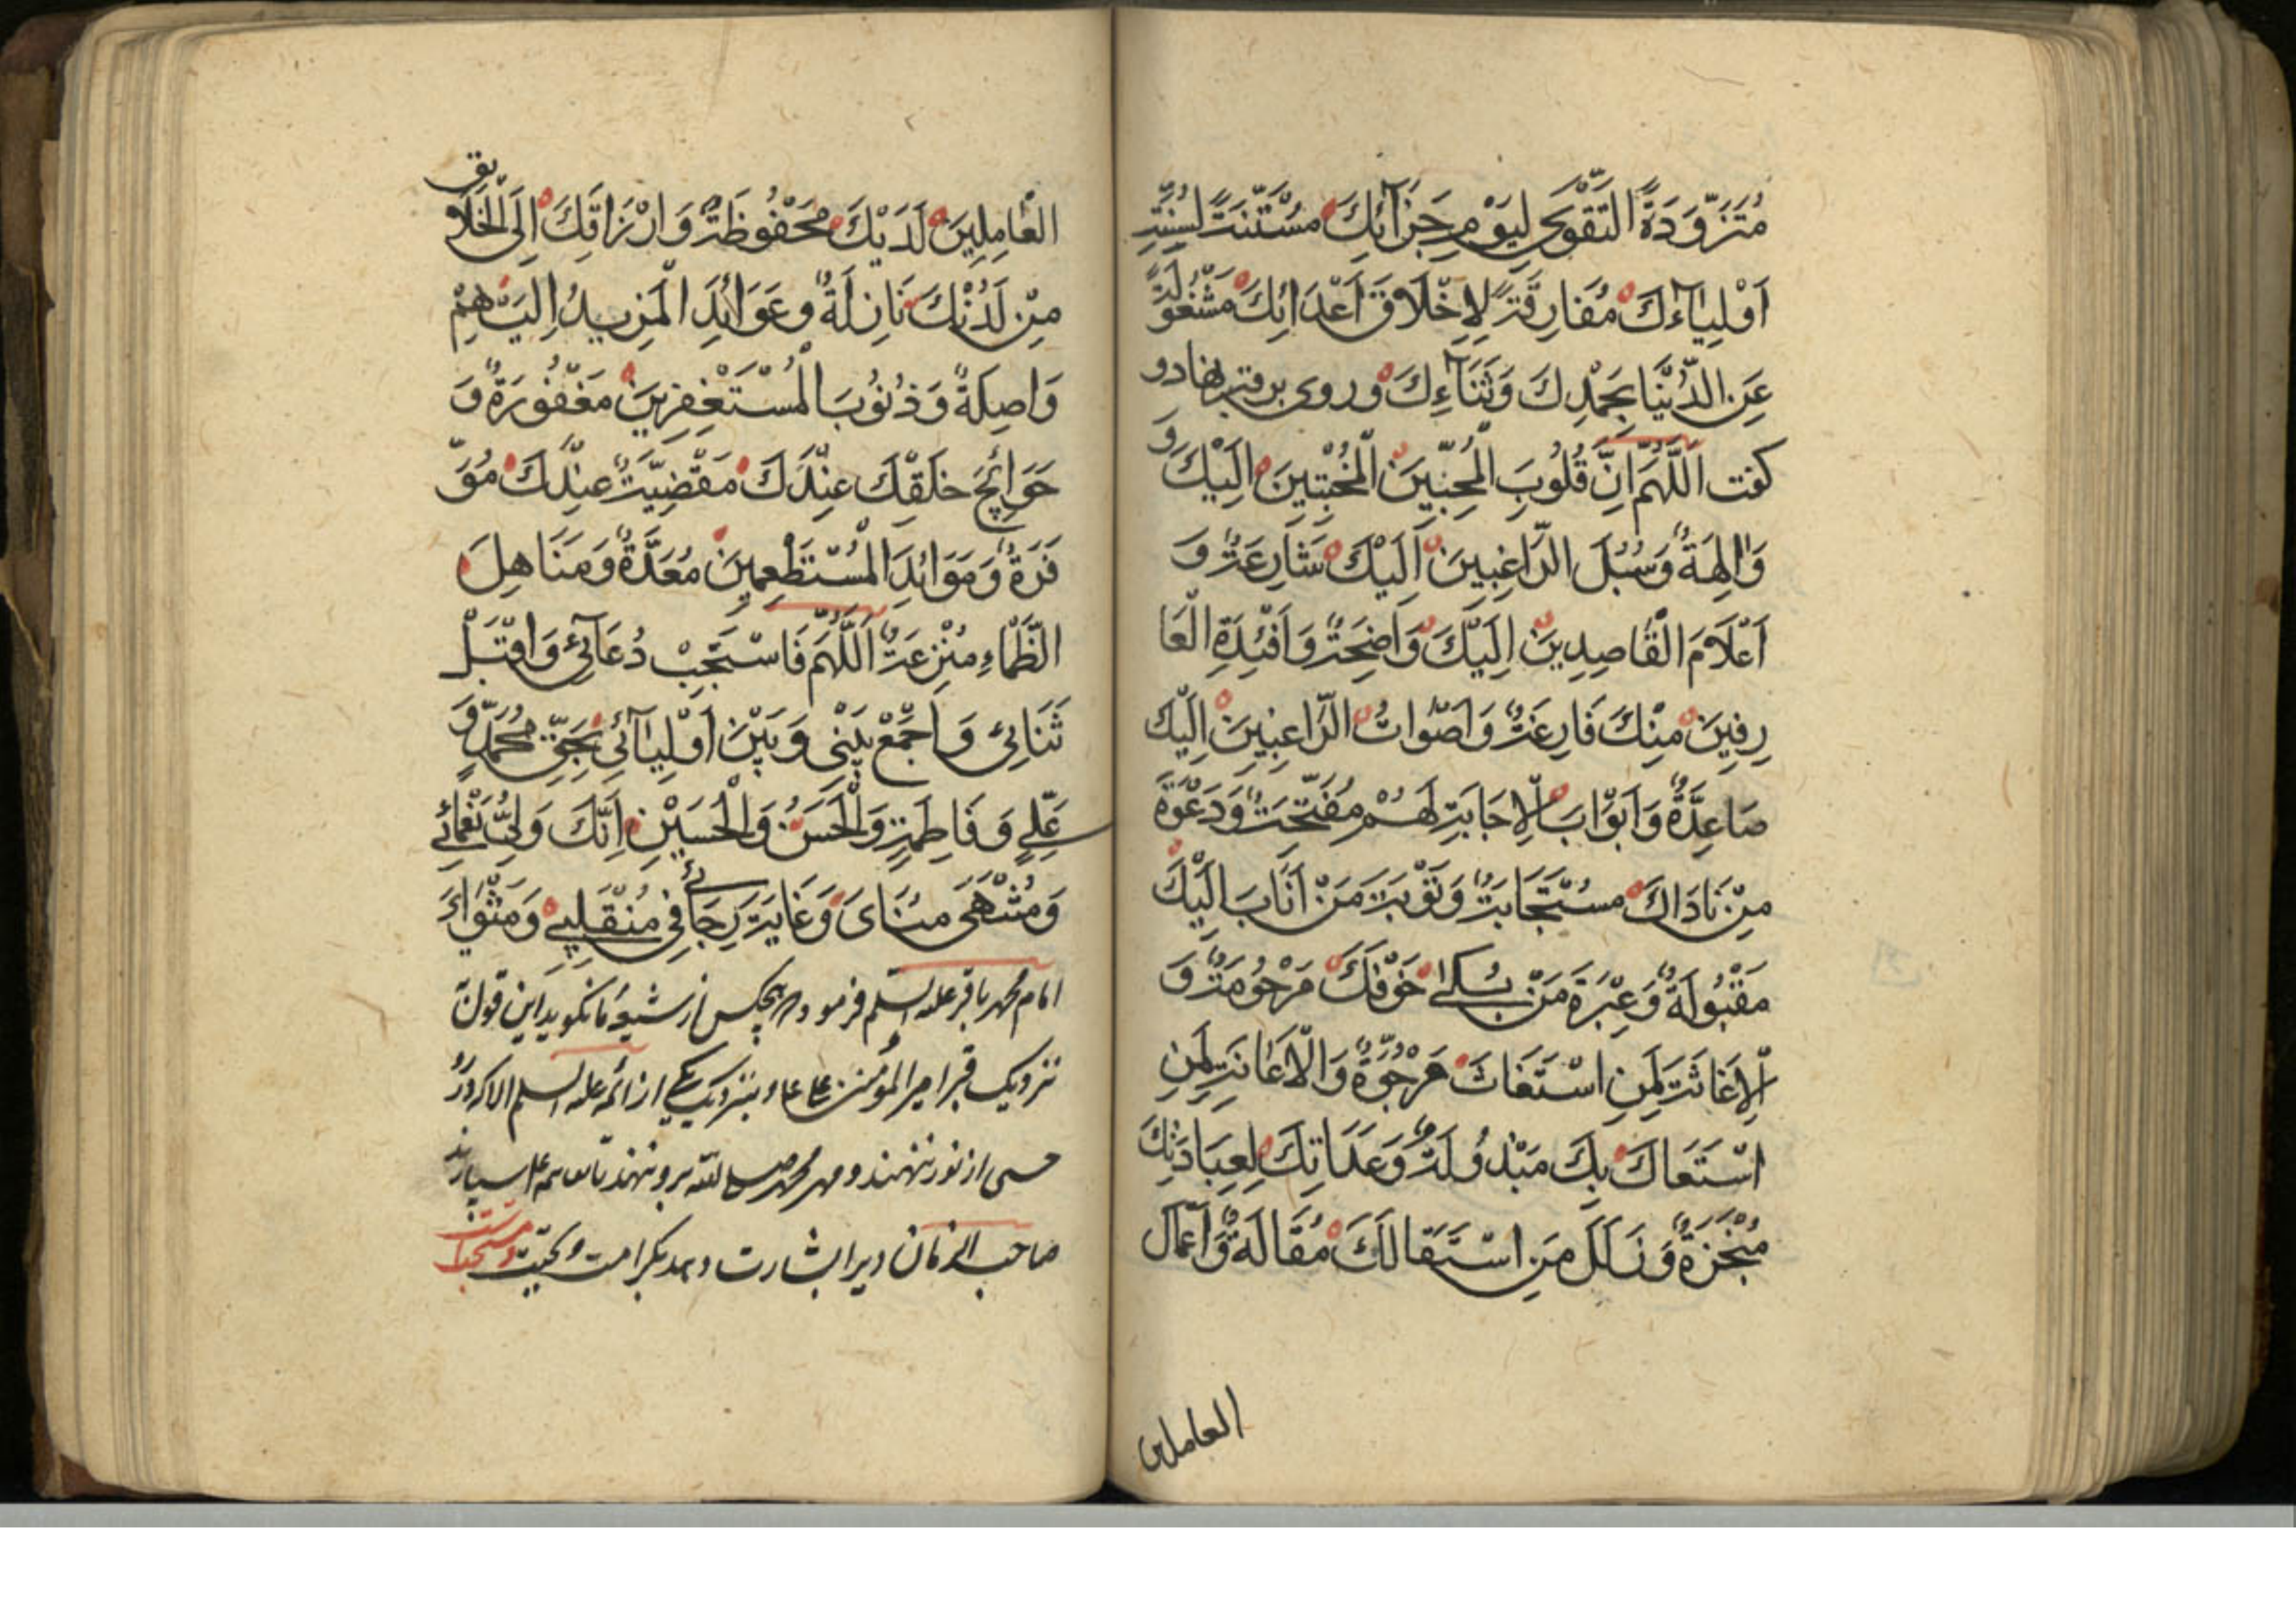 مُتَزَوِّدَةً التَّقْوَى لِيَوْمِ جَزَآئِكَ مُسْتَنَّةً لِسُنَّةِ
اَوْلِيَآءِكَ مُفَارِقَةً لِاِخْلَاقَ اَعْدَائِكَ مَشْغُولَةً
عَنِ الدُّنْيَا بِحَمْدِكَ وَثَنَآءِكَ و روی بر قبر نهاد و
كفت اَللّٰهُمَّ اِنَّ قُلُوبَ الْمُحِبِّينَ الْمُخْبِتِينَ اِلَيْكَ وَ
وَالِهَةٌ وَسُبُلَ الرَّاغِبِينَ اِلَيْكَ شَارِعَةٌ وَ
اَعْلَامَ الْقَاصِدِينَ اِلَيْكَ وَاضِحَةٌ وَاَفْئِدَةِ الْعَا
رِفِينَ مِنْكَ فَارِغَةٌ وَاَصْوَاتُ الرَّاعِبِينَ اِلَيْكَ
صَاعِدَةٌ وَاَبْوَابَ الْاِجَابَةِ لَهُمْ مُفَتَّحَةٌ وَدَعْوَةَ
مِنْ نَادَاكَ مُسْتَجَابَةٌ وَتَوْبَةَ مَنْ اَنَابَ اِلَيْكَ
مَقْبُولَةٌ وَعِبْرَةَ مَنْ بُكٰى خَوْفِكَ مَرْحُومَةٌ وَ
الْاِغَاثَةَ لِمَنِ اسْتَغَاثَ مَرْجُوَّةٌ وَالْاَعَانَةِ لِمَنِ
اسْتَعَاكَ بِكَ مَبْذُولَةٌ وَعَدَاتِكَ لِعِبَادَتِكَ
مُنْجَزَةٌ وَزَلَلَ مَنِ اسْتَقَالَكَ مُقَالَةٌ وَاَعْمَالَ
العاملين
الْعَامِلِينَ لَدَيْكَ مَحْفُوظَةٌ وَاَرْزَاقِكَ اِلَى الْخَلَآئِقِ
مِنْ لَدُنْكَ نَازِلَةٌ وَعَوَائِدَ الْمَزِيدُ اِلَيْهِمْ
وَاصِلَةٌ وَذُنُوبَ الْمُسْتَغْفِرِينَ مَغْفُورَةٌ وَ
حَوَائِجَ خَلْقِكَ عِنْدَكَ مَقْضِيَّةٌ عِنْدَكَ مُوَ
فَرَةٌ وَمَوَائِدَ الْمُسْتَطْعِمِينَ مُعَدَّةٌ وَمَنَاهِلَ
الظَّمَاءِ مُنْزِعَةٌ اَللّٰهُمَّ فَاسْتَجِبْ دُعَآئِى وَاقْبَلْ
ثَنَائِى وَاَجْمَعْ بَيْنِى وَبَيْنَ اَوْلِيَآئِى بِحَقِّ مُحَمَّدٍ وَ
عَلِىٍّ وَفَاطِمَةِ وَالْحَسَنُ وَالْحُسَيْنِ اِنَّكَ وَلِىُّ نَعْمَائِى
وَمُنْتَهٰى مُنَاىَ وَغَايَةَ رَجَائِى فِى مُنْقَلَبِى وَمَثْوَاىَ
امام محمد باقر علیه السلم فرمود هر هیچکس از شیعه ما نکوید این قول
نزدیک قبر امیر المؤمنین علی و بنزدیک یکی از ائمه علیه السلم الا که در
از نور ننهند و مهر محمد صلی الله بر و نهند تا بقائم علیه سپارند
صاحب الزمان و برا بشارت دهد بکرامت و تحیت و مستحبات